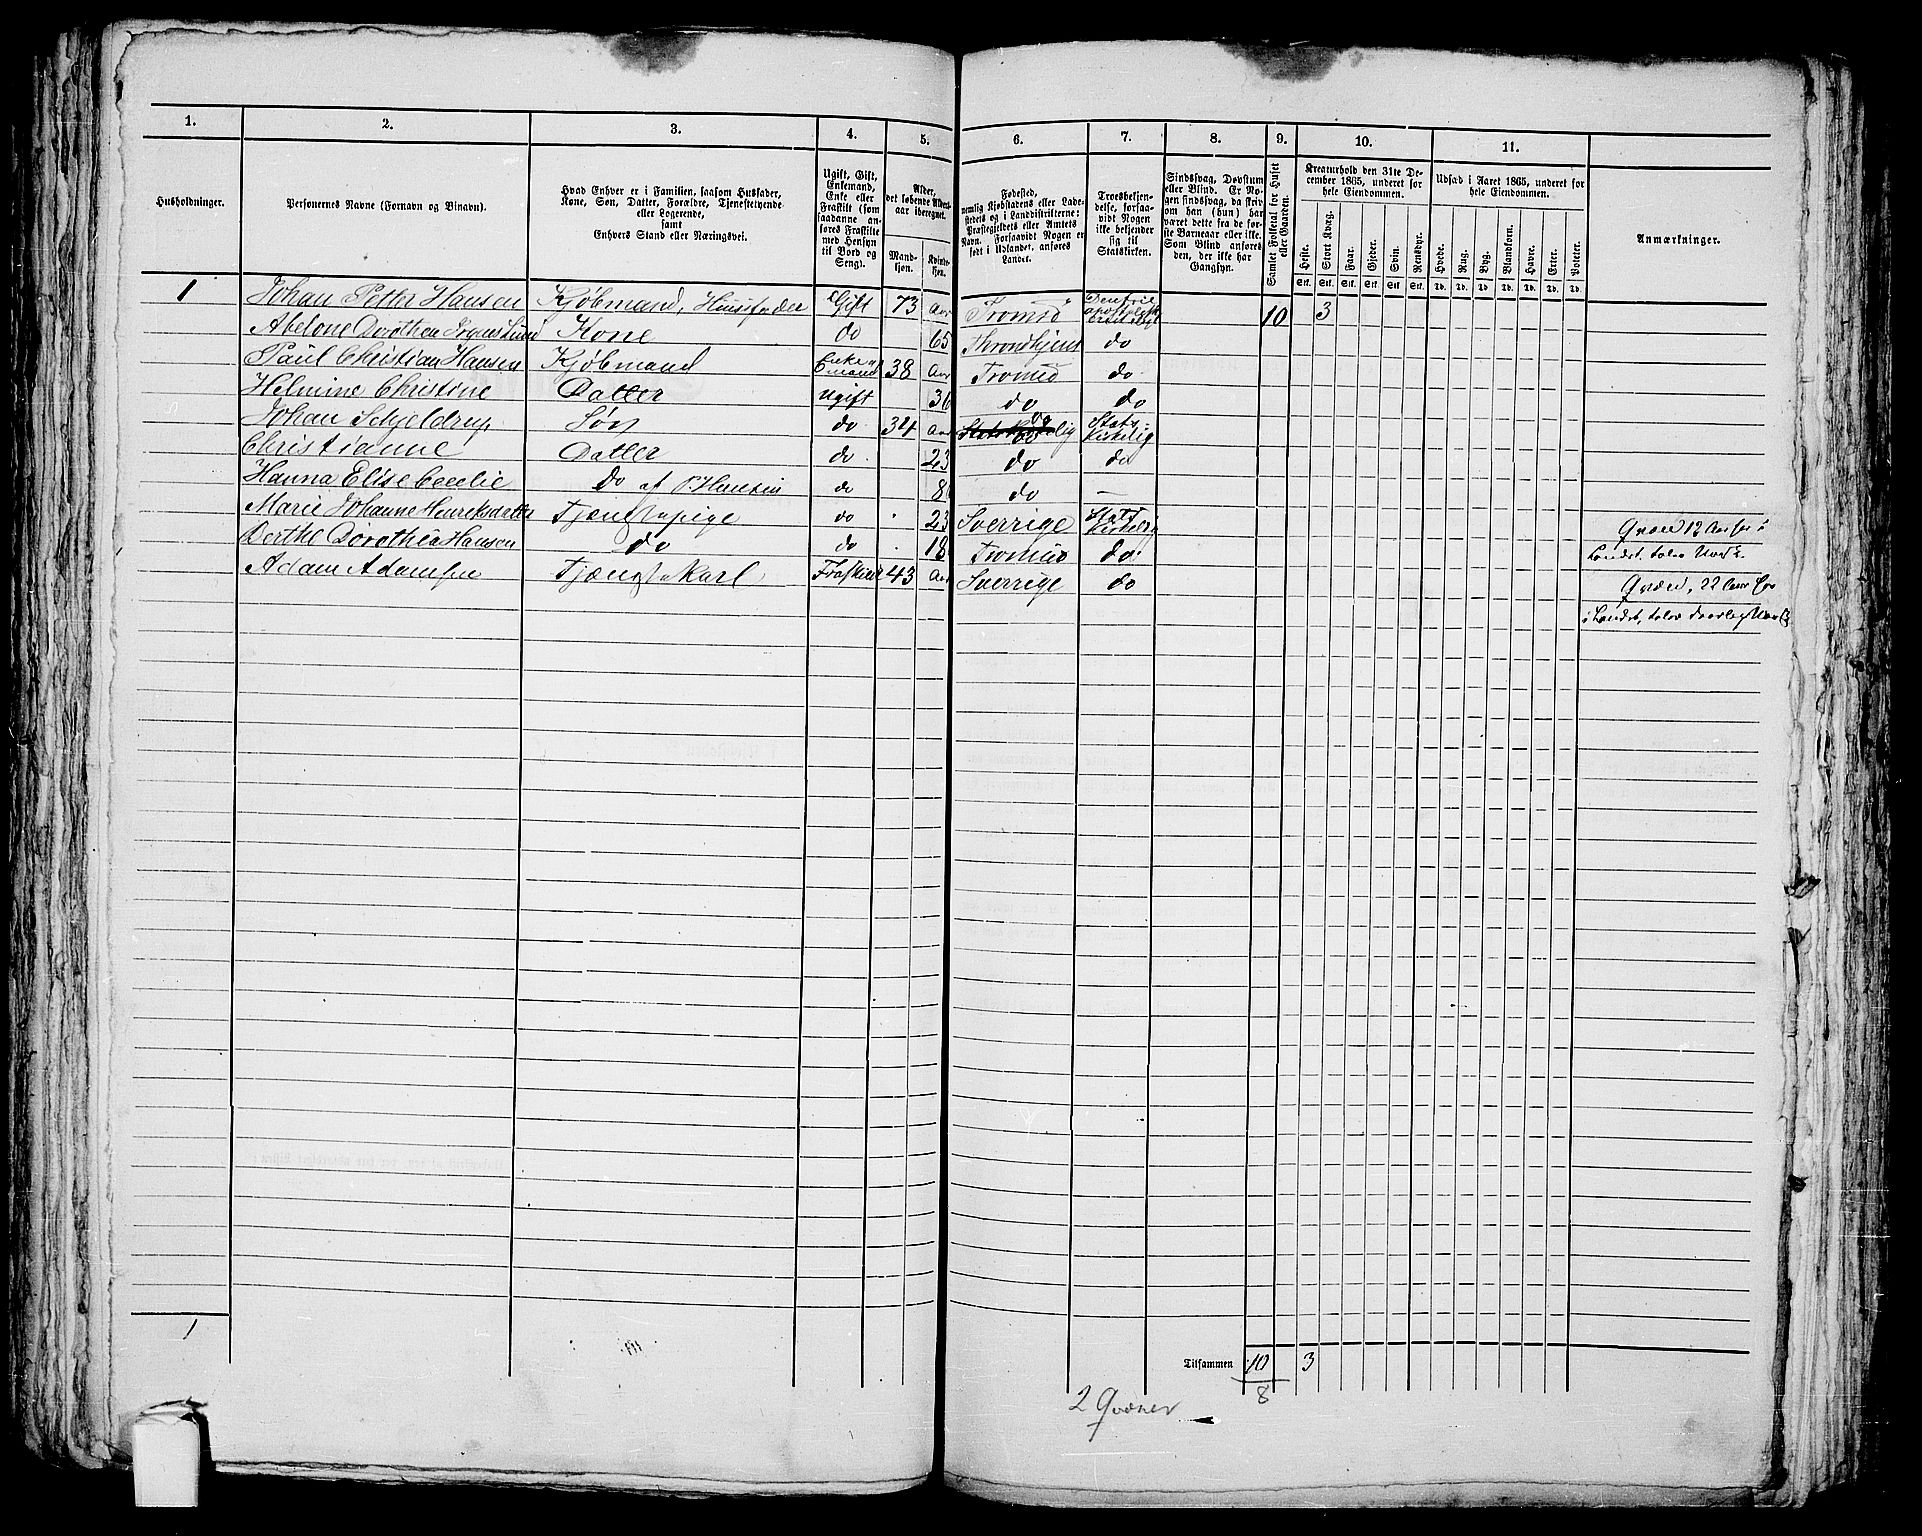 1. 2. 3. 4. 5. 6. 7. 8. 9. 10. 11.
Husholdninger.
Personernes Navne (Fornavn og Binavn).
Hvad Enhver er i Familien, saasom Husfader,
Kone, Søn, Datter, Forældre, Tjenestetyende
eller Logerende,
samt
Enhvers Stand eller Næringsvei.
Ugift, Gift,
Enkemand,
Enke eller
Fraskilt (som
saadanne an-
føres Fraskilte
med Hensyn
til Bord og
Seng).
Alder,
det løbende Alders-
aar iberegnet.
Mand-
kjøn.
Kvinde-
kjøn.
Fødested,
nemlig Kjøbstadens eller Lade-
stedets og i Landdistrikterne:
Præstegjeldets eller Amtets
Navn. Forsaavidt Nogen er
født i Udlandet, anføres
Landet.
Troesbekjen-
delse, forsaa-
vidt Nogen
ikke bekjender
sig til
Statskirken.
Sindssvag, Døvstum
eller Blind. Er No-
gen sindssvag, da skriv
om han (hun) har
været dette fra de før-
ste Barneaar eller ikke.
Som Blind anføres
den, der ikke har
Gangsyn.
Samlet Folketal for Huset
eller Gaarden.
Kreaturhold den 31te De-
cember 1865, underet for
hele Eiendommen.
Heste. Stort Kvæg. Faar. Gjeder. Svin. Rensdyr.
Stk. Stk. Stk. Stk. Stk. Stk.
Udsæd i Aaret 1865, underet for
hele Eiendommen.
Hvede. Rug. Byg. Blandkorn. Havre. Erter. Poteter.
Td. Td. Td. Td. Td. Td. Td.
Anmærkninger.
1 Johan Petter Hansen Kjøbmand, Huusfader Gift 73 Aar Tromsø Den frie apostoliske 10 3
Abelone Dorothea Lund Kone do 65 Throndhjem do
Paul Christian Hansen Kjøbmand Enkemand 38 Aar Tromsø do
Helmine Christine Datter Ugift 36 do do
Johan Schjeldrup Søn do 34 Aar do Statskirkelig
Christianne Datter do 23 do do
Hanna Elise Cecilie Do af P. Hansen do 8 do —
Marie Johanne Henriksdatter Tjenstepige do 23 Sverrige Statskirkelig Qvæn 12 Aar i
Landet, taler Norsk
Berthe Dorothea Hansen do do 18 Tromsø do
Adam Adamsen Tjenstekarl Fraskilt 43 Aar Sverrige do Qvæn, 22 Aar
i Landet, taler daarlig Norsk
1
Tilsammen 10 3
8
2 Qvæner